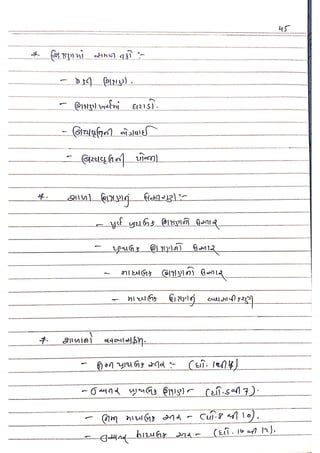 45
* શિક્ષણમાં સમાન તકો :-
- ફ્રી શિક્ષણ.
- શિક્ષણ ખર્ચમાં ઘટાડો.
- શિષ્યવૃત્તિની જોગવાઈ
- શિષ્યવૃત્તિની યોજના
* શાળા શિક્ષણનું વિસ્તરણ :-
- પૂર્વ પ્રાથમિક શિક્ષણનો વિસ્તાર
- પ્રાથમિક શિક્ષણનો વિસ્તાર
- માધ્યમિક શિક્ષણનો વિસ્તાર
- માધ્યમિક શિક્ષણનું વ્યવસાયીકરણ
* શાળાનો
- નિમ્ન પ્રાથમિક સ્તર :- (ધો. 1થી 4)
- ઉચ્ચતર પ્રાથમિક શિક્ષણ - (ધો. 5થી 7).
- નિમ્ન માધ્યમિક સ્તર - (ધો. 8 થી 10).
- ઉચ્ચતર માધ્યમિક સ્તર - (ધો. 10 થી 12).